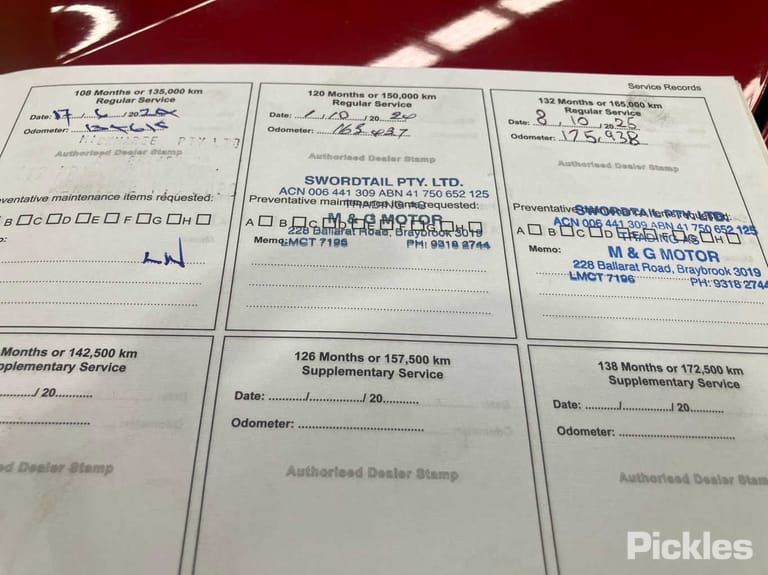 Service Records
108 Months or 135,000 km
Regular Service
Date: 17 / 6 / 20
Odometer:
PTY LTD
Authorised Dealer Stamp
ventative maintenance items requested:
B C D E F G H
120 Months or 150,000 km
Regular Service
Date: 1 / 10 / 20 24
Odometer: 165437
Authorised Dealer Stamp
SWORDTAIL PTY. LTD.
ACN 006 441 309 ABN 41 750 652 125
Preventative maintenance items requested:
TRADING AS
A B C D E F G H
M & G MOTOR
228 Ballarat Road, Braybrook 3019
Memo:
LMCT 7196 PH: 9318 2744
132 Months or 165,000 km
Regular Service
Date: 8 / 10 / 20 25
Odometer: 175,938
Authorised Dealer Stamp
Preventative
SWORDTAIL PTY. LTD.
ACN 006 441 309 ABN 41 750 652 125
A B C D E F G H
TRADING AS
Memo:
M & G MOTOR
228 Ballarat Road, Braybrook 3019
LMCT 7196 PH: 9318 2744
Months or 142,500 km
pplementary Service
/ 20
ed Dealer Stamp
126 Months or 157,500 km
Supplementary Service
Date: ............/................/ 20...........
Odometer: .....................................
Authorised Dealer Stamp
138 Months or 172,500 km
Supplementary Service
Date: .........../................/ 20...........
Odometer: .....................................
Authorised Dealer Stam
Pickles